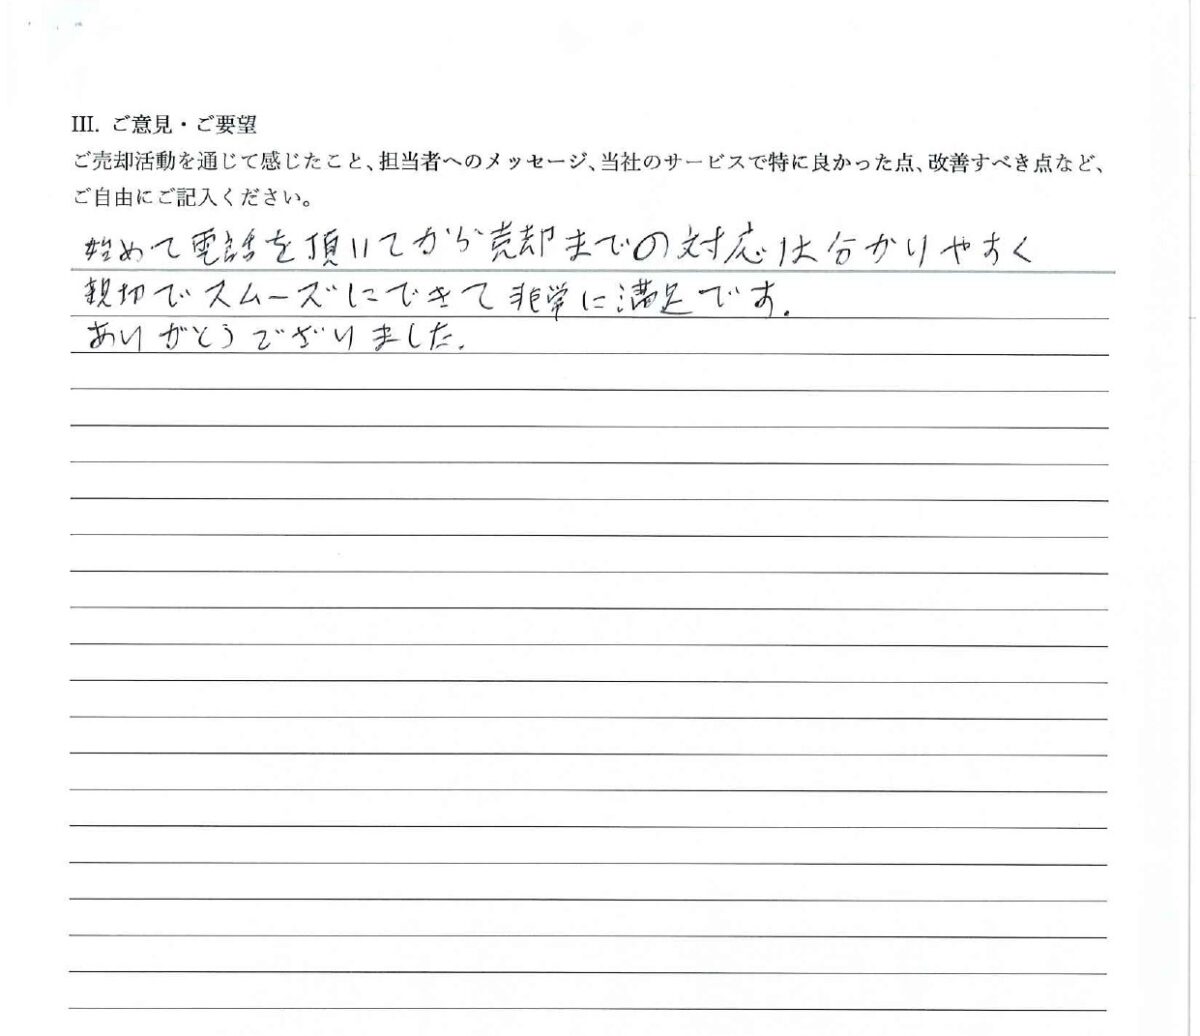 III. ご意見・ご要望
ご売却活動を通じて感じたこと、担当者へのメッセージ、当社のサービスで特に良かった点、改善すべき点など、
ご自由にご記入ください。
始めて電話を頂いてから売却までの対応は分かりやすく
親切でスムーズにできて非常に満足です.
ありがとうございました.